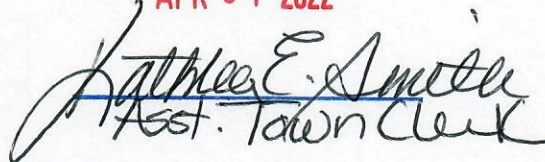 APR 2022
Kathleen E. Smith
Asst. Town Clerk